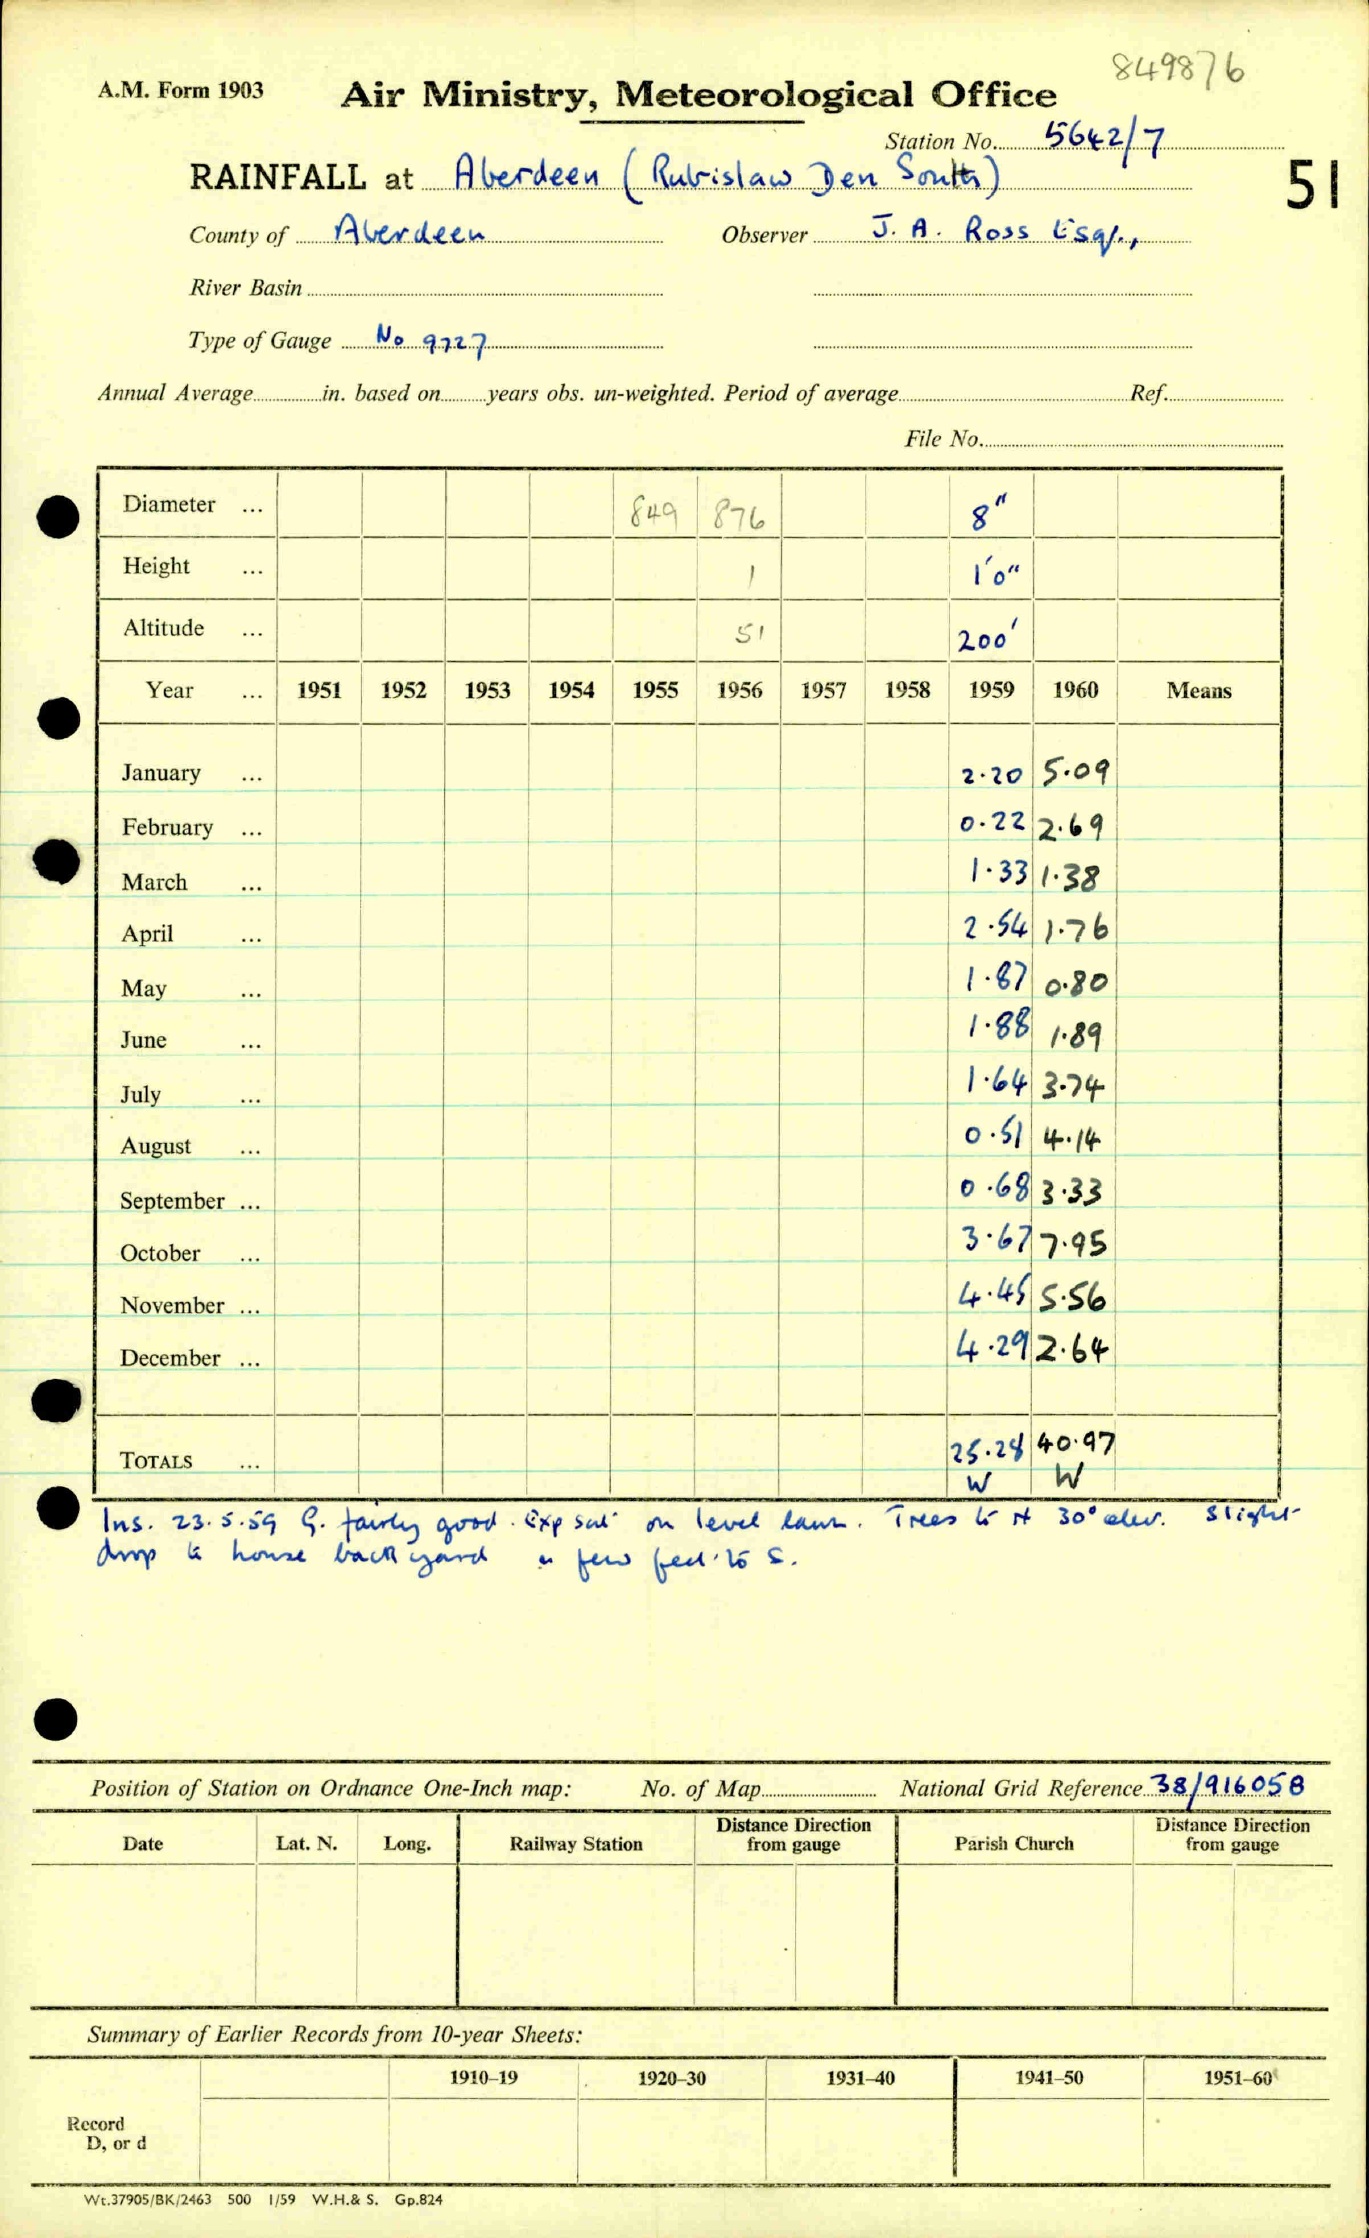 849876
A.M. Form 1903 Air Ministry, Meteorological Office
Station No. 5642/7
RAINFALL at Aberdeen (Rubislaw Den South) 51
County of Aberdeen Observer J. A. Ross Esq.,
River Basin
Type of Gauge No 9727
Annual Average in. based on years obs. un-weighted. Period of average Ref.
File No.
Diameter ... 849 876 8"
Height ... 1 1'0"
Altitude ... 51 200'
Year ... 1951 1952 1953 1954 1955 1956 1957 1958 1959 1960 Means
January ... 2.20 5.09
February ... 0.22 2.69
March ... 1.33 1.38
April ... 2.54 1.76
May ... 1.87 0.80
June ... 1.88 1.89
July ... 1.64 3.74
August ... 0.51 4.14
September ... 0.68 3.33
October ... 3.67 7.95
November ... 4.45 5.56
December ... 4.29 2.64
TOTALS ... 25.28 40.97
W W
Ins. 23.5.59 G. fairly good. Exp sat on level lawn. Trees to N 30° elev. Slight
drop to house back yard a few feet to S.
Position of Station on Ordnance One-Inch map: No. of Map National Grid Reference 38/916058
Date Lat. N. Long. Railway Station Distance Direction from gauge Parish Church Distance Direction from gauge
Summary of Earlier Records from 10-year Sheets:
1910–19 1920–30 1931–40 1941–50 1951–60
Record
D, or d
Wt.37905/BK/2463 500 1/59 W.H.& S. Gp.824